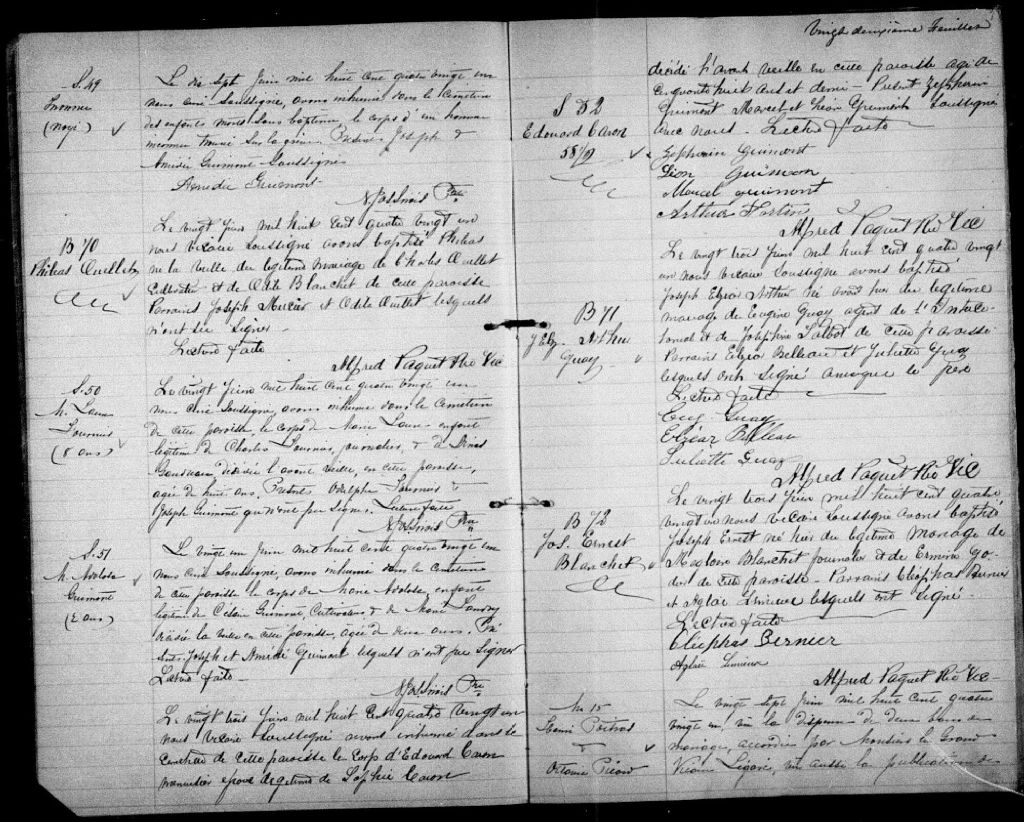 S. 49
Inconnu
(noyé)
Le dix sept Juin mil huit cent quatre vingt un
nous curé Soussigné, avons inhumé dans le cimetière
des enfants morts sans baptême le corps d'un homme
inconnu trouvé sur la grève. Présents Joseph &
Amédée Guimont Soussignés
Amedée Guimont
Ptre
B 70
Phileas Ouellet
Le vingt Juin mil huit cent quatre vingt un
nous vicaire soussigné avons baptisé Phileas
né la veille du légitime mariage de Charles Ouellet
cultivateur et de Odile Blanchet de cette paroisse
Parrains Joseph Mercier et Odile Ouellet lesquels
n'ont su signer -
Lecture faite
Alfred Paquet Ptre Vic
S. 50
M. Laura
Fournier
(8 ans)
Le vingt Juin mil huit cent quatre vingt un
nous curé Soussigné, avons inhumé dans le cimetière
de cette paroisse le corps de Marie Laura enfant
légitime de Charles Fournier, journalier, & de
Gaudreau décédée l'avant veille, en cette paroisse,
agée de huit ans. Présents Adolphe Fournier &
Joseph Guimont qui n'ont pu signer. Lecture faite
Ptre
S. 51
M.
Guimont
(2 ans)
Le vingt un Juin mil huit cent quatre vingt un
nous curé Soussigné, avons inhumé dans le cimetière
de cette paroisse le corps de Marie enfant
légitime de Guimont, Cultivateur & de Marie
décédée la veille en cette paroisse, agée de deux ans. Pré
sents Joseph et Amédée Guimont lesquels n'ont pu signer
Lecture faite.
Ptre
Le vingt trois Juin mil huit cent quatre vingt un
nous vicaire soussigné avons inhumé dans le
cimetière de cette paroisse le corps d'Edouard Caron
menuisier époux légitime de Sophie Caron
Vingt deuxième Feuillet
S 52
Edouard Caron
58 1/2
décédé l'avant veille en cette paroisse agé de
cinquante huit ans et demi - Présent Zepherin
Guimont Marcel et Léon Guimont soussignés
avec nous. Lecture faite
Zepherin Guimont
Léon Guimon
Marcel Guimont
Arthur Fortin
Alfred Paquet Ptre Vic
B 71
J Elz. Arthur
Guay
Le vingt trois Juin mil huit cent quatre vingt
un nous vicaire soussigné avons baptisé
Joseph Elzéar Arthur né avant hier du légitime
mariage de Eugène Guay agent de l'Interco-
lonial et de Joséphine Talbot de cette paroisse
Parrains Elzéar Belleau et Juliette Guay
lesquels ont signé ainsi que le père
Lecture faite
Eug. Guay
Elzéar Belleau
Juliette Guay
Alfred Paquet Ptre Vic
B 72
Jos. Ernest
Blanchet
Le vingt trois Juin mil huit cent quatre
vingt un nous vicaire soussigné avons baptisé
Joseph Ernest né hier du légitime mariage de
Blanchet journalier et de Go-
din de cette paroisse - Parrains Eliephas Bernier
et Aglaé Lemieux lesquels ont signé.
Lecture faite
Eliephas Bernier
Aglaé Lemieux
Alfred Paquet Ptre Vic -
M 15
Henri Poitras
&
Octavie Picard
Le vingt sept Juin mil huit cent quatre
vingt un, vu la dispense de deux bans de
mariage, accordée par Monsieur le Grand
Vicaire Légaré, vu aussi la publication de